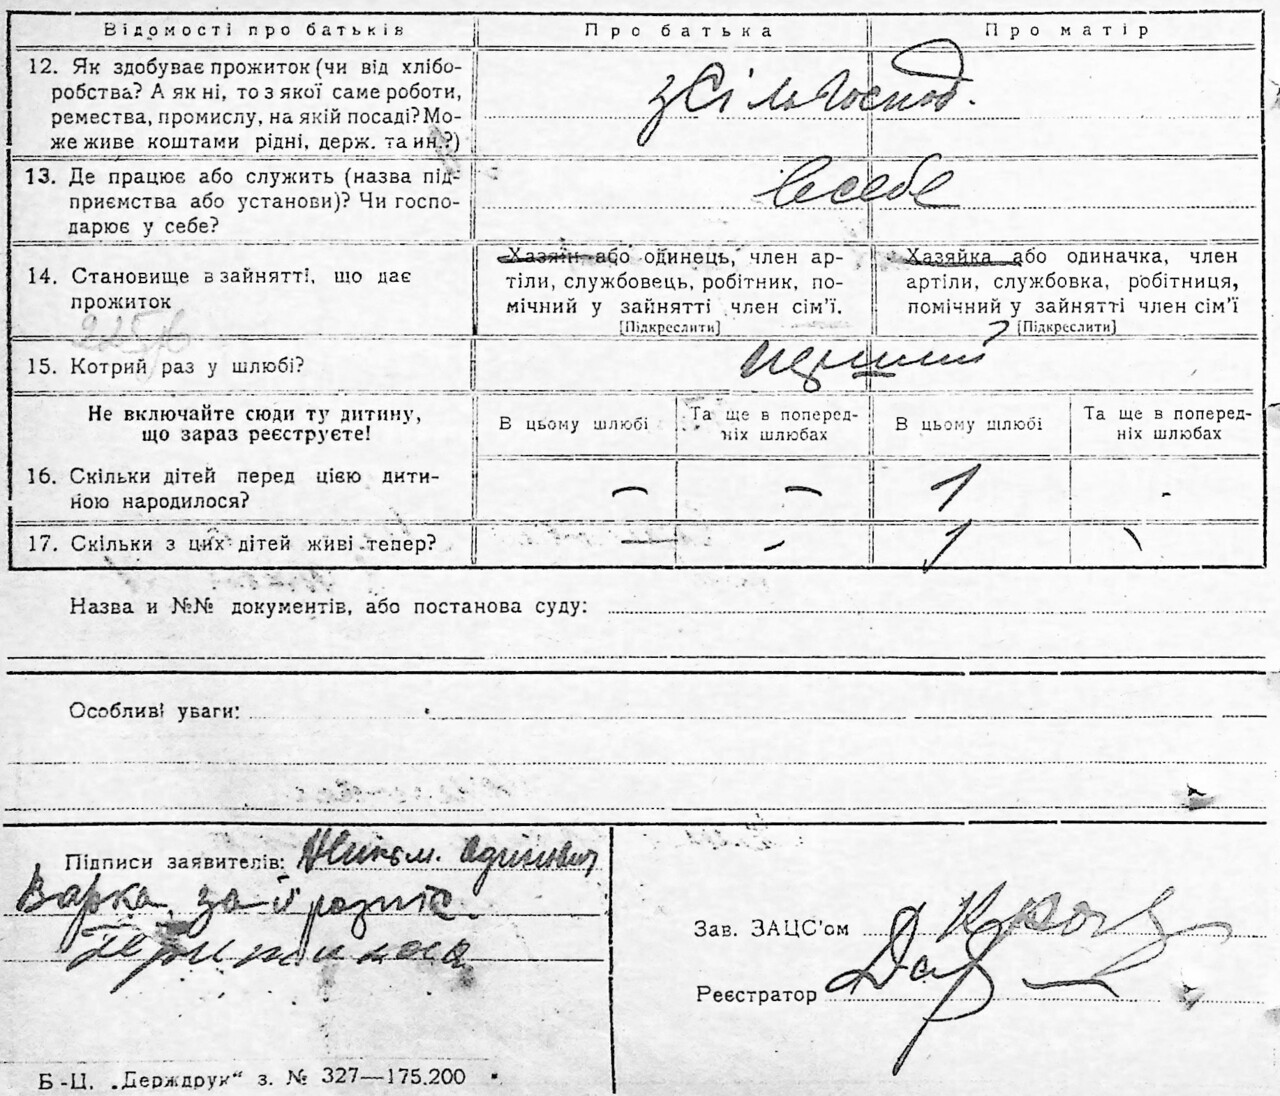 Відомості про батьків Про батька Про матір
12. Як здобуває прожиток (чи від хлібо-
робства? А як ні, то з якої саме роботи,
ремества, промислу, на якій посаді? Мо-
же живе коштами рідні, держ. та ин.?)
з Сільгоспод.
13. Де працює або служить (назва під-
приємства або установи)? Чи госпо-
дарює у себе?
всебе
14. Становище в зайнятті, що дає
прожиток
Хазяїн або одинець, член ар-
тіли, службовець, робітник, по-
мічний у зайнятті член сім'ї.
[Підкреслити]
Хазяйка або одиначка, член
артіли, службовка, робітниця,
помічний у зайнятті член сім'ї
[Підкреслити]
15. Котрий раз у шлюбі?
перший
Не включайте сюди ту дитину,
що зараз реєструєте!
В цьому шлюбі
Та ще в поперед-
ніх шлюбах
В цьому шлюбі
Та ще в поперед-
ніх шлюбах
16. Скільки дітей перед цією дити-
ною народилося?
— — 1 -
17. Скільки з цих дітей живі тепер?
— - 1 -
Назва и №№ документів, або постанова суду:
Особливі уваги:
Підписи заявителів:
Варка за її розпис.
Зав. ЗАЦС'ом
Реєстратор
Б-Ц. „Держдрук“ з. № 327—175.200